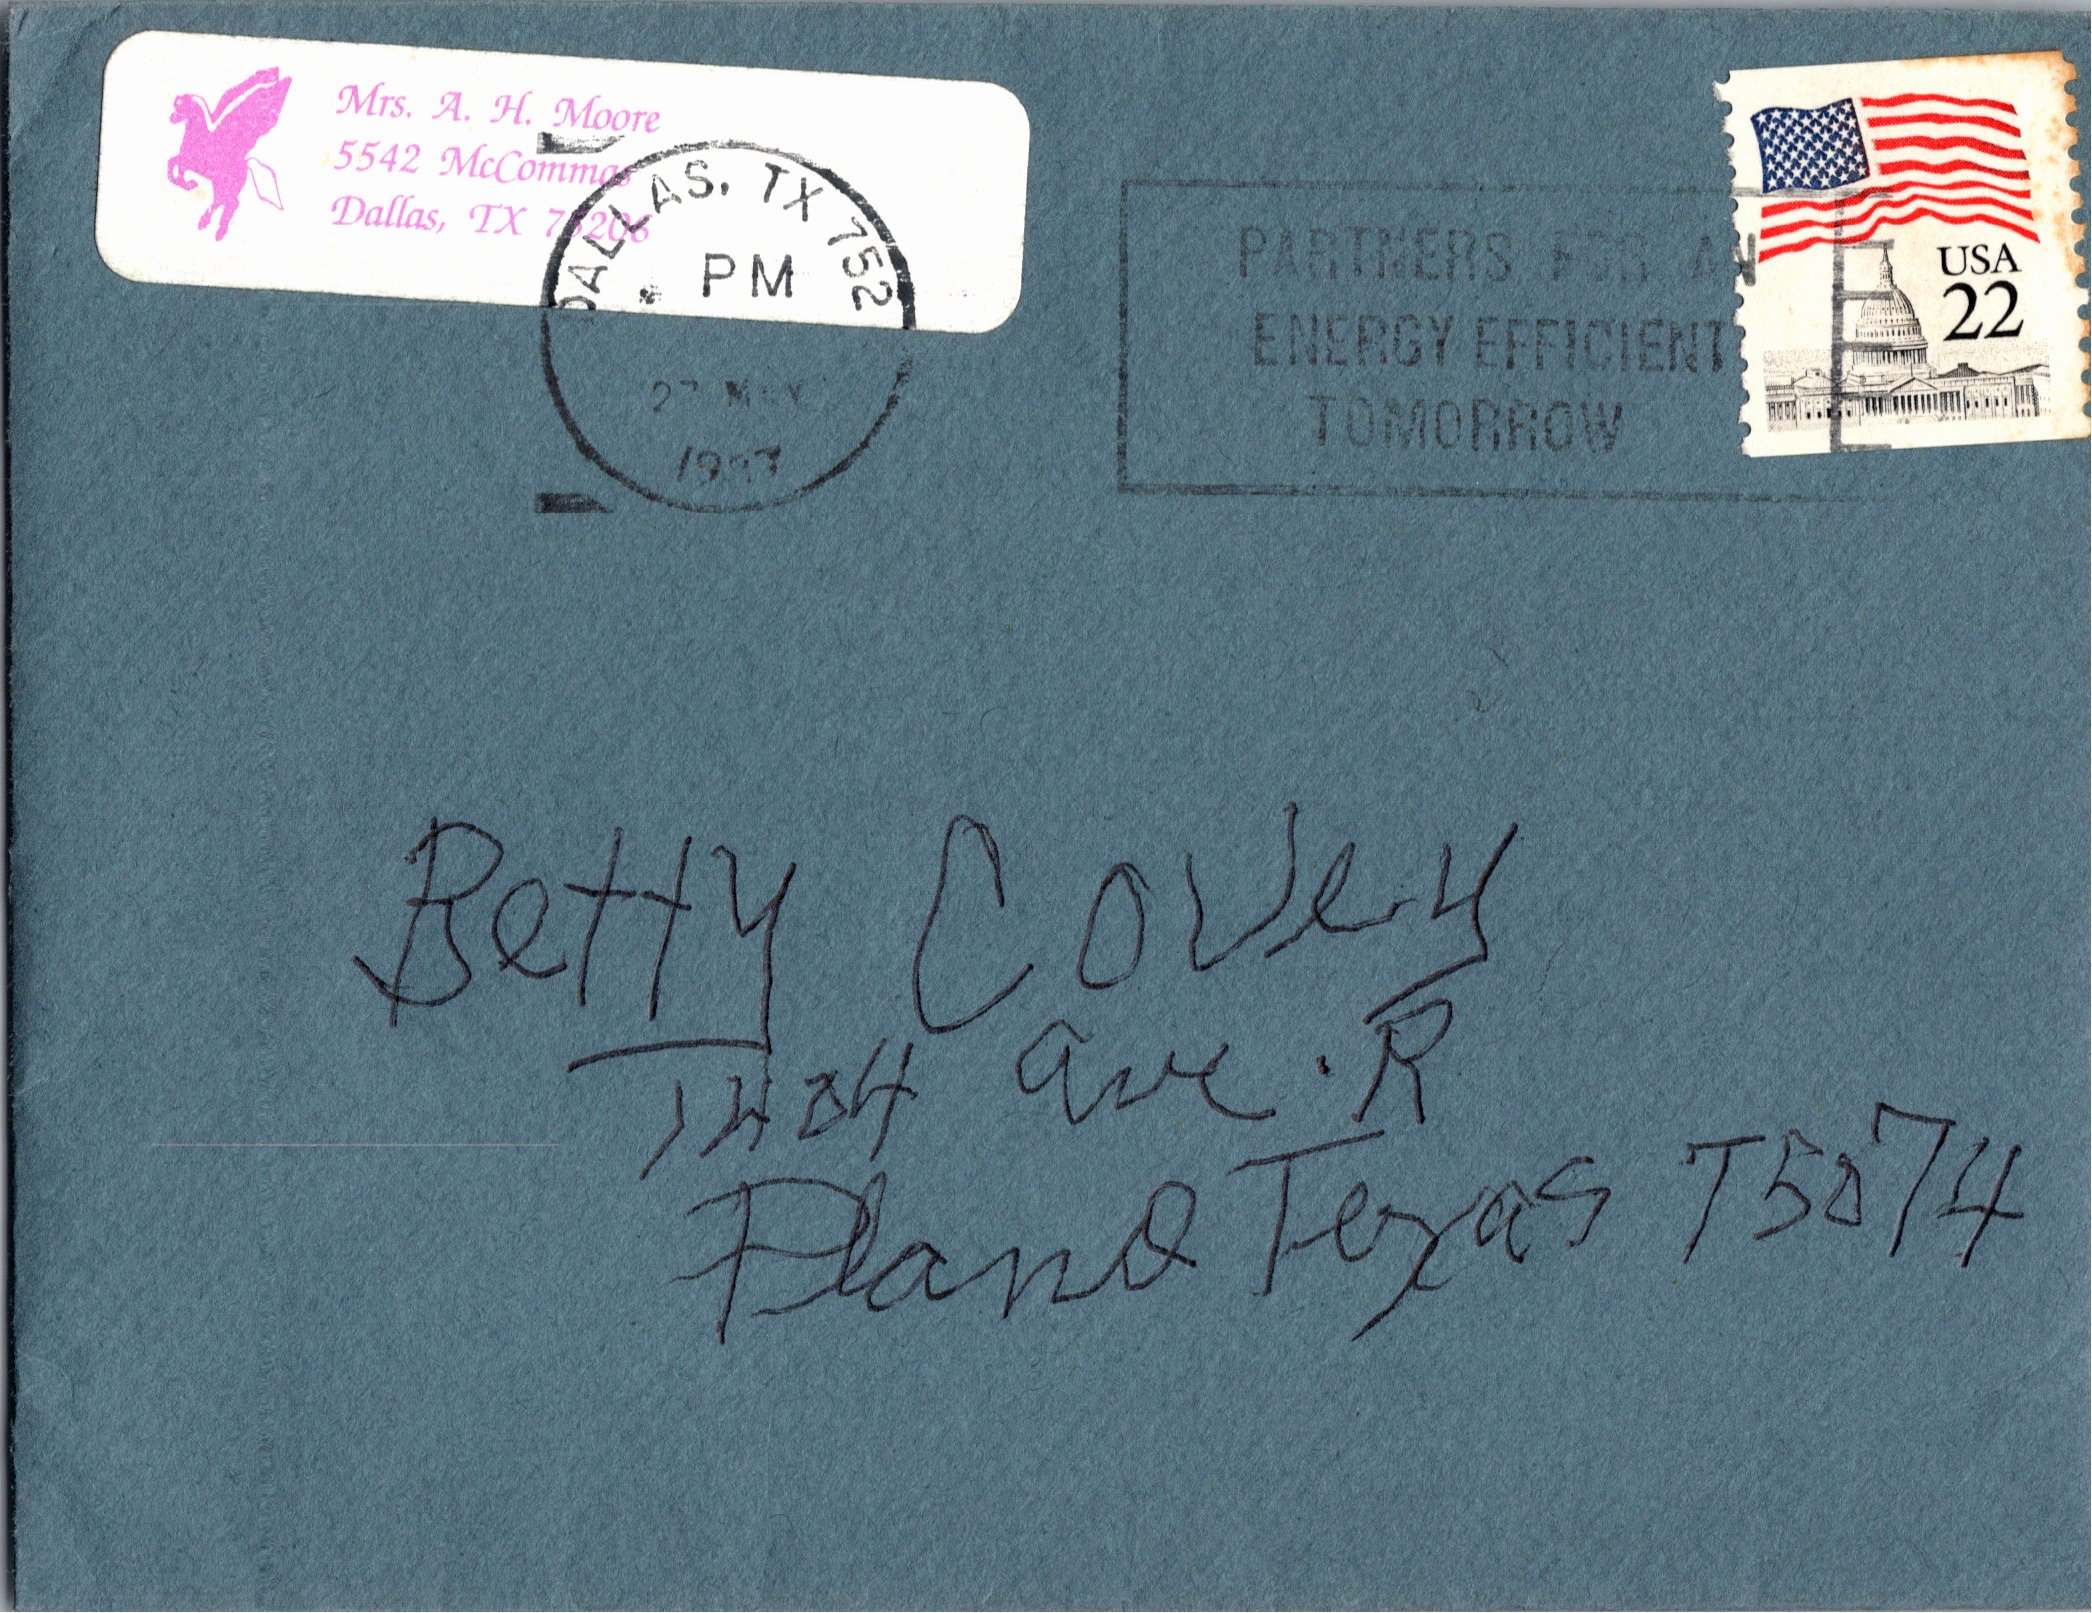 Mrs. A. H. Moore
5542 McCommas
Dallas, TX 75206
DALLAS, TX 752
PM
27 MAY
PARTNERS FOR AN
ENERGY EFFICIENT
TOMORROW
USA
22
Betty Covey
Ave. R
Plano Texas 75074